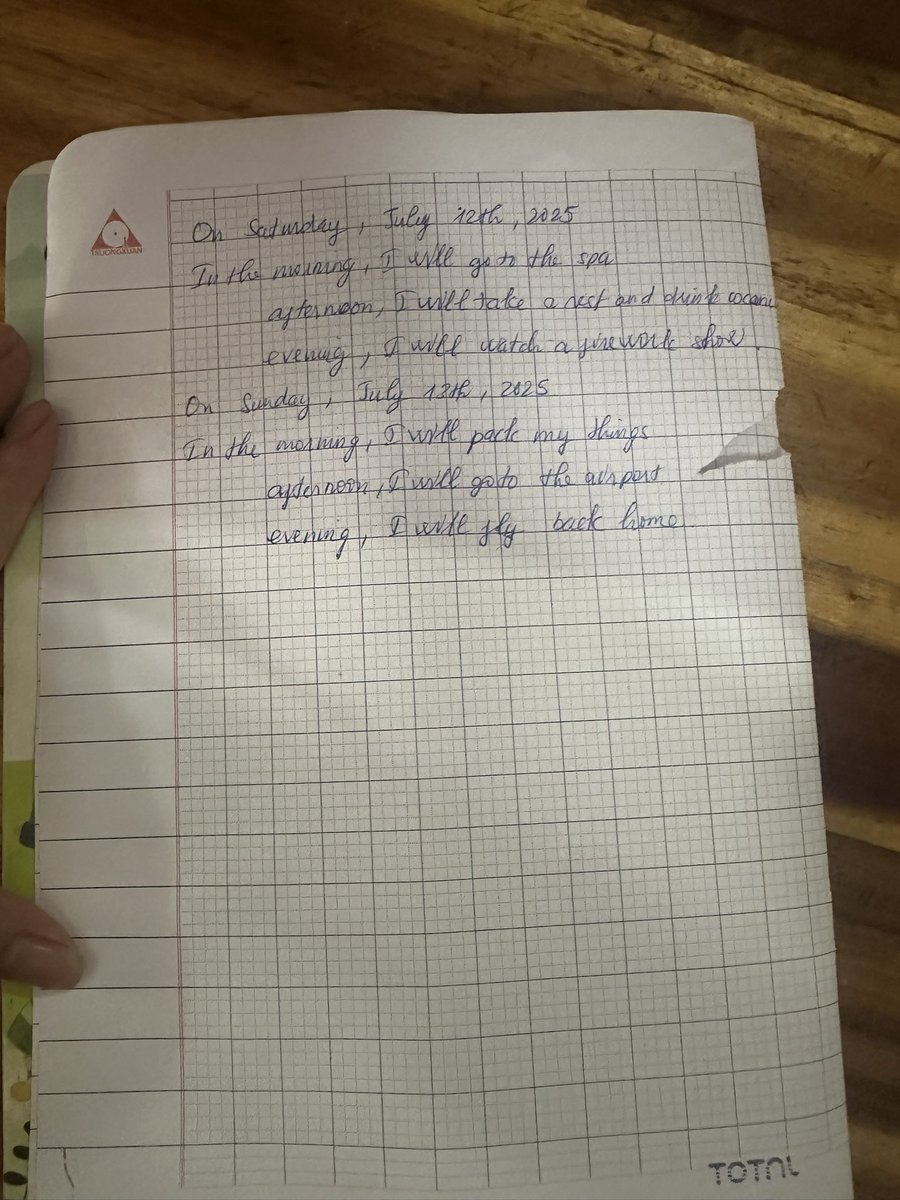 TRUONGXUAN
On Saturday, July 12th, 2025
In the morning, I will go to the spa
afternoon, I will take a rest and drink
evening, I will watch a firework show.
On Sunday, July 13th, 2025
In the morning, I will pack my things
afternoon, I will go to the airport
evening, I will fly back home
TOTAL